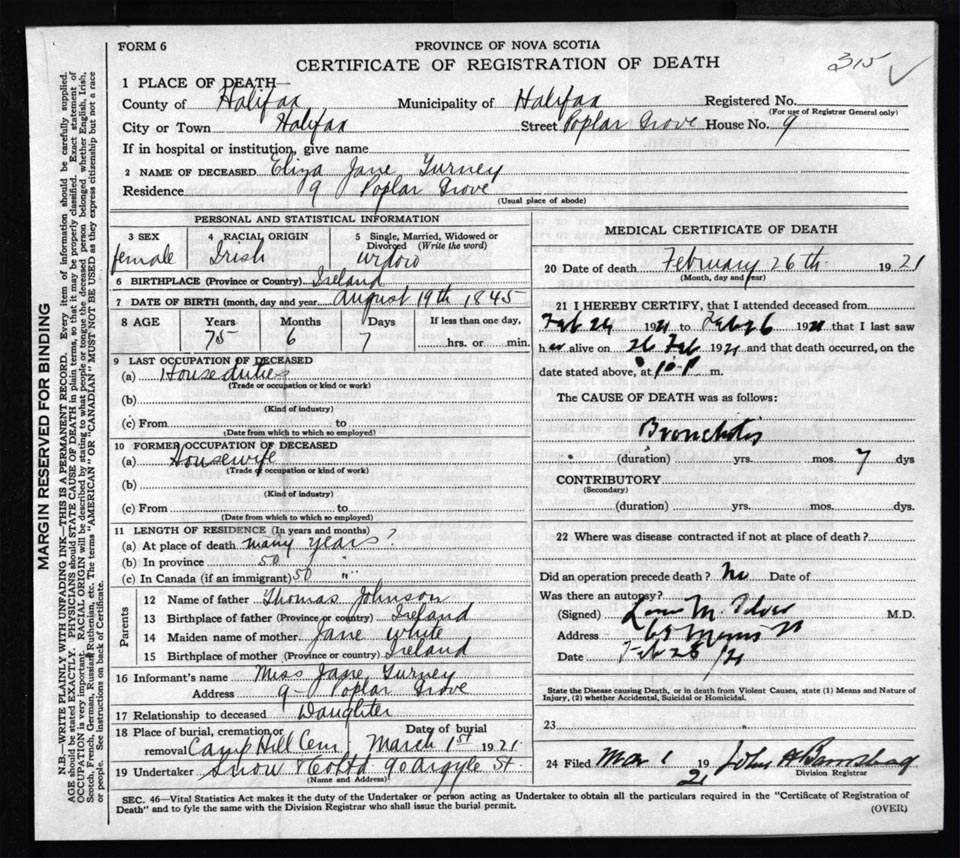 FORM 6
PROVINCE OF NOVA SCOTIA
CERTIFICATE OF REGISTRATION OF DEATH
315 ✓
1 PLACE OF DEATH—
County of Halifax Municipality of Halifax Registered No.
(For use of Registrar General only)
City or Town Halifax Street Poplar Grove House No. 9
If in hospital or institution, give name
2 NAME OF DECEASED Eliza Jane Turney
Residence 9 Poplar Grove
(Usual place of abode)
PERSONAL AND STATISTICAL INFORMATION
3 SEX 4 RACIAL ORIGIN 5 Single, Married, Widowed or
Divorced (Write the word)
female Irish widow
6 BIRTHPLACE (Province or Country) Ireland
7 DATE OF BIRTH (month, day and year) August 19th 1845
8 AGE Years Months Days If less than one day,
75 6 7 hrs. or min.
9 LAST OCCUPATION OF DECEASED
(a) House duties
(Trade or occupation or kind of work)
(b)
(Kind of industry)
(c) From to
(Date from which to which so employed)
10 FORMER OCCUPATION OF DECEASED
(a) Housewife
(Trade or occupation or kind of work)
(b)
(Kind of industry)
(c) From to
(Date from which to which so employed)
11 LENGTH OF RESIDENCE (In years and months)
(a) At place of death many years ?
(b) In province 50 "
(c) In Canada (if an immigrant) 50 "
Parents
12 Name of father Thomas Johnson
13 Birthplace of father (Province or country) Ireland
14 Maiden name of mother Jane White
15 Birthplace of mother (Province or Country) Ireland
16 Informant's name Miss Jane Turney
Address 9 - Poplar Grove
17 Relationship to deceased Daughter
18 Place of burial, cremation or Date of burial
removal Camp Hill Cem March 1st 1921
19 Undertaker Snow & Co Ltd 90 Argyle St.
(Name and Address)
MEDICAL CERTIFICATE OF DEATH
20 Date of death February 26th 1921
(Month, day and year)
21 I HEREBY CERTIFY, that I attended deceased from
Feb 24 1921 to Feb 26 1921 that I last saw
h er alive on 26 Feb 1921 and that death occurred, on the
date stated above, at 10 P m.
The CAUSE OF DEATH was as follows:
Bronchitis
(duration) yrs. mos. 7 dys
CONTRIBUTORY
(Secondary)
(duration) yrs. mos. dys.
22 Where was disease contracted if not at place of death?
Did an operation precede death? No Date of
Was there an autopsy?
(Signed) M. M.D.
Address 65 Morris St
Date Feb 28/21
State the Disease causing Death, or in death from Violent Causes, state (1) Means and Nature of
Injury, (2) whether Accidental, Suicidal or Homicidal.
23
24 Filed Mar 1 1921 John A
Division Registrar
SEC. 46—Vital Statistics Act makes it the duty of the Undertaker or person acting as Undertaker to obtain all the particulars required in the "Certificate of Registration of
Death" and to fyle the same with the Division Registrar who shall issue the burial permit.
(OVER)
MARGIN RESERVED FOR BINDING
N.B.—WRITE PLAINLY WITH UNFADING INK—THIS IS A PERMANENT RECORD. Every item of information should be carefully supplied.
AGE should be stated EXACTLY. PHYSICIANS should STATE CAUSE OF DEATH in plain terms, so that it may be properly classified. Exact statement of
OCCUPATION is very important. RACIAL ORIGIN will be described by stating to what people or tongue the deceased person belonged whether English, Irish,
Scotch, French, German, Russian, Ruthenian, etc. The terms "AMERICAN" OR "CANADIAN" MUST NOT BE USED as they express citizenship but not a race
or people. See instructions on back of Certificate.